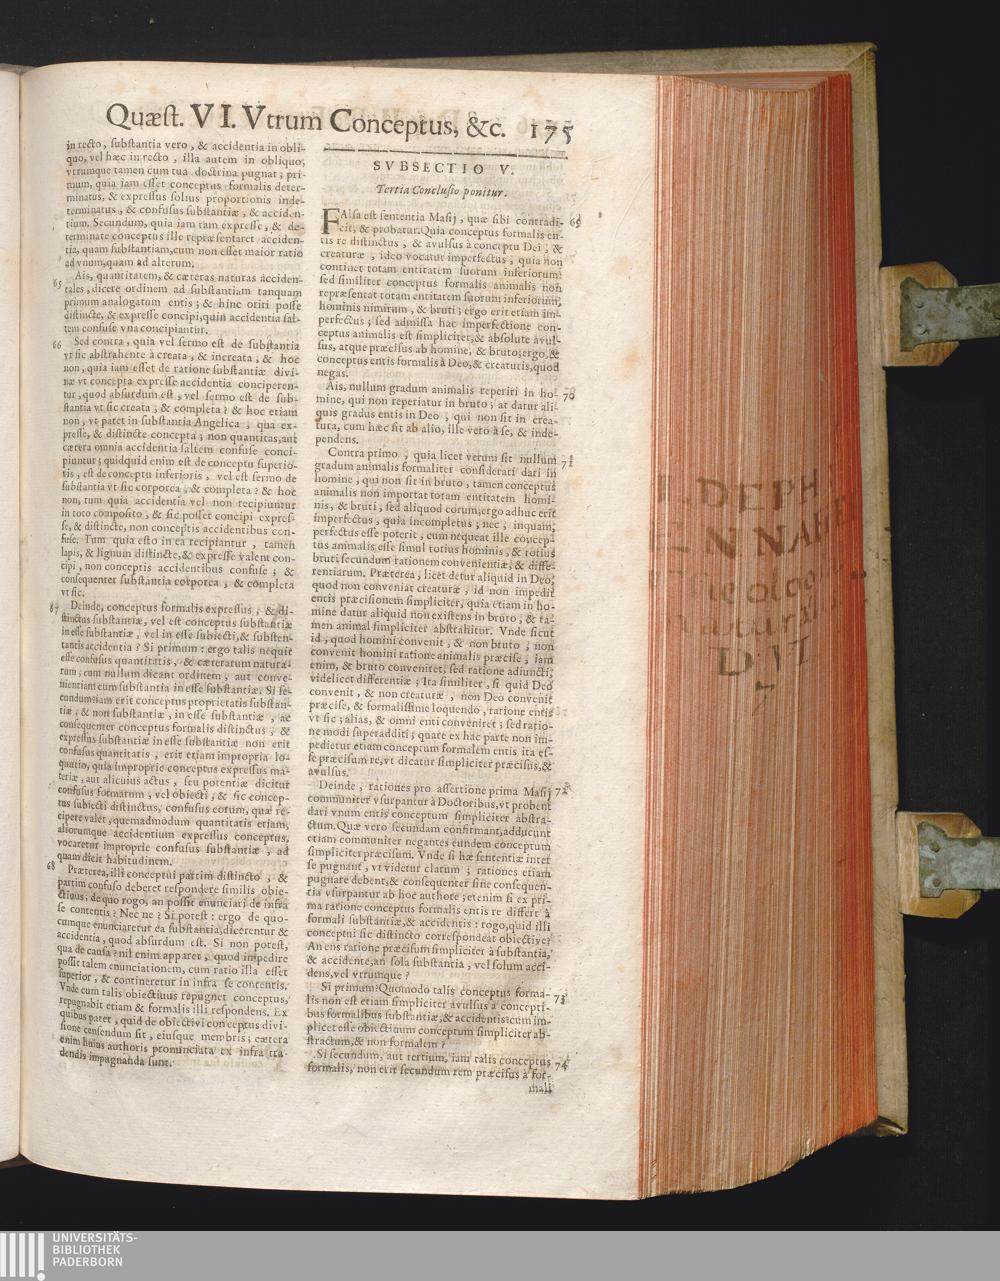 Quæst. VI. Vtrum Conceptus, &c. 175
in recto, substantia vero, & accidentia in obli-
quo, vel hæc in recto, illa autem in obliquo;
vtrumque tamen cum tua doctrina pugnat; pri-
mum, quia iam esset conceptus formalis deter-
minatus, & expressus solius proportionis inde-
terminatus, & confusus substantiæ, & acciden-
tium. Secundum, quia iam tam expresse, & de-
terminate conceptus ille repræsentaret acciden-
tia, quam substantiam, cum non esset maior ratio
ad vnum, quam ad alterum.
65 Ais, quantitatem, & cæteras naturas acciden-
tales, dicere ordinem ad substantiam tanquam
primum analogatum entis; & hinc oriri posse
distincte, & expresse concipi, quin accidentia sal-
tem confuse vna concipiantur.
66 Sed contra, quia vel sermo est de substantia
vt sic abstrahente à creata, & increata, & hoc
non, quia iam esset de ratione substantiæ divi-
næ vt concepta expresse accidentia conciperen-
tur, quod absurdum est, vel sermo est de sub-
stantia vt sic creata, & completa? & hoc etiam
non, vt patet in substantia Angelica, qua ex-
presse, & distincte concepta; non quantitas, aut
cætera omnia accidentia saltem confuse conci-
piuntur; quidquid enim est de conceptu superio-
ris, est de conceptu inferioris, vel est sermo de
substantia vt sic corporea, & completa? & hoc
non, tum quia accidentia vel non recipiuntur
in toto composito, & sic posset concipi expres-
se, & distincte, non conceptis accidentibus con-
fuse. Tum quia esto in ea recipiantur, tamen
lapis, & lignum distincte, & expresse valent con-
cipi, non conceptis accidentibus confuse; &
consequenter substantia corporea, & completa
vt sic.
67 Deinde, conceptus formalis expressus, & di-
stinctus substantiæ, vel est conceptus substantiæ
in esse substantiæ, vel in esse subiecti, & substen-
tantis accidentia? Si primum: ergo talis nequit
esse confusus quantitatis, & cæterarum natura-
rum; cum nullum dicant ordinem, aut conve-
nientiam cum substantia in esse substantiæ. Si se-
cundum: iam erit conceptus proprietatis substan-
tiæ, & non substantiæ, in esse substantiæ, ac
consequenter conceptus formalis distinctus, &
expressus substantiæ in esse substantiæ non erit
confusus quantitatis, erit etiam impropria lo-
quutio, quia improprie conceptus expressus ma-
teriæ, aut alicuius actus, seu potentiæ dicitur
confusus formarum, vel obiecti, & sic concep-
tus subiecti distinctus, confusus eorum, quæ re-
cipere valet, quemadmodum quantitatis etiam,
aliorumque accidentium expressus conceptus,
vocaretur improprie confusus substantiæ, ad
quam dicit habitudinem.
68 Præterea, illi conceptui partim distincto, &
partim confuso deberet respondere similis obie-
ctiuus; de quo rogo, an possit enunciari de infra
se contentis? Nec ne? Si potest: ergo de quo-
cumque enunciarerur ea substantia, dicerentur &
accidentia, quod absurdum est. Si non potest,
qua de causa? nil enim apparet, quod impedire
possit talem enunciationem, cum ratio illa esset
superior, & contineretur in infra se contentis.
Vnde cum talis obiectiuus repugnet conceptus,
repugnabit etiam & formalis illi respondens. Ex
quibus patet, quid de obiectivi conceptus divi-
sione censendum sit, eiusque membris; cætera
enim huius authoris pronunciata ex infra tra-
dendis impugnanda sunt.
SVBSECTIO V.
Tertia Conclusio ponitur.
FAlsa est sententia Masij, quæ sibi contradi- 69
cit, & probatur. Quia conceptus formalis en-
tis re distinctus, & avulsus à conceptu Dei, &
creaturæ, ideo vocatur imperfectus, quia non
continet totam entitatem suorum inferiorum:
sed similiter conceptus formalis animalis non
repræsentat totam entitatem suorum inferiorum,
hominis nimirum, & bruti; ergo erit etiam im-
perfectus; sed admissa hac imperfectione con-
ceptus animalis est simpliciter, & absolute avul-
sus, atque præcisus ab homine, & bruto; ergo, &
conceptus entis formalis à Deo, & creaturis, quod
negas.
Ais, nullum gradum animalis reperiri in ho- 70
mine, qui non reperiatur in bruto; at datur ali-
quis gradus entis in Deo, qui non sit in crea-
tura, cum hæc sit ab alio, ille vero à se, & inde-
pendens.
Contra primo, quia licet verum sit nullum 71
gradum animalis formaliter considerati dari in
homine, qui non sit in bruto, tamen conceptus
animalis non importat totam entitatem homi-
nis, & bruti, sed aliquod eorum; ergo adhuc erit
imperfectus, quia incompletus; nec, inquam,
perfectus esse poterit, cum nequeat ille concep-
tus animalis esse simul totius hominis, & totius
bruti secundum rationem convenientiæ, & diffe-
rentiarum. Præterea, licet detur aliquid in Deo,
quod non conveniat creaturæ, id non impedit
entis præcisionem simpliciter, quia etiam in ho-
mine datur aliquid non existens in bruto, & ta-
men animal simpliciter abstrahitur. Vnde sicut
id, quod homini convenit, & non bruto, non
convenit homini ratione animalis præcise, iam
enim, & bruto conveniret, sed ratione adiuncti,
videlicet differentiæ; Ita similiter, si quid Deo
convenit, & non creaturæ, non Deo convenit
præcise, & formalissime loquendo, ratione entis
vt sic; alias, & omni enti conveniret; sed ratio-
ne modi superadditi; quare ex hac parte non im-
pedietur etiam conceptum formalem entis ita es-
se præcisum re, vt dicatur simpliciter præcisus, &
avulsus.
Deinde, rationes pro assertione prima Masij 72
communiter vsurpantur à Doctoribus, vt probent
dari vnum entis conceptum simpliciter abstra-
ctum. Quæ vero secundam confirmant, adducunt
etiam communiter negantes eundem conceptum
simpliciter præcisum. Vnde si hæ sententiæ inter
se pugnant, vt videtur clarum; rationes etiam
pugnare debent, & consequenter sine consequen-
tia vsurpantur ab hoc authore; etenim si ex pri-
ma ratione conceptus formalis entis re differt à
formali substantiæ, & accidentis: rogo, quid illi
conceptui sic distincto correspondeat obiective?
An ens ratione præcisum simpliciter à substantia,
& accidente, an sola substantia, vel solum acci-
dens, vel vtrumque?
Si primum? Quomodo talis conceptus forma- 73
lis non est etiam simpliciter avulsus à concepti-
bus formalibus substantiæ, & accidentis? cum im-
plicet esse obiectiuum conceptum simpliciter ab-
stractum, & non formalem?
Si secundum, aut tertium, iam talis conceptus 74
formalis, non erit secundum rem præcisus à for-
mali
UNIVERSITÄTS-
BIBLIOTHEK
PADERBORN